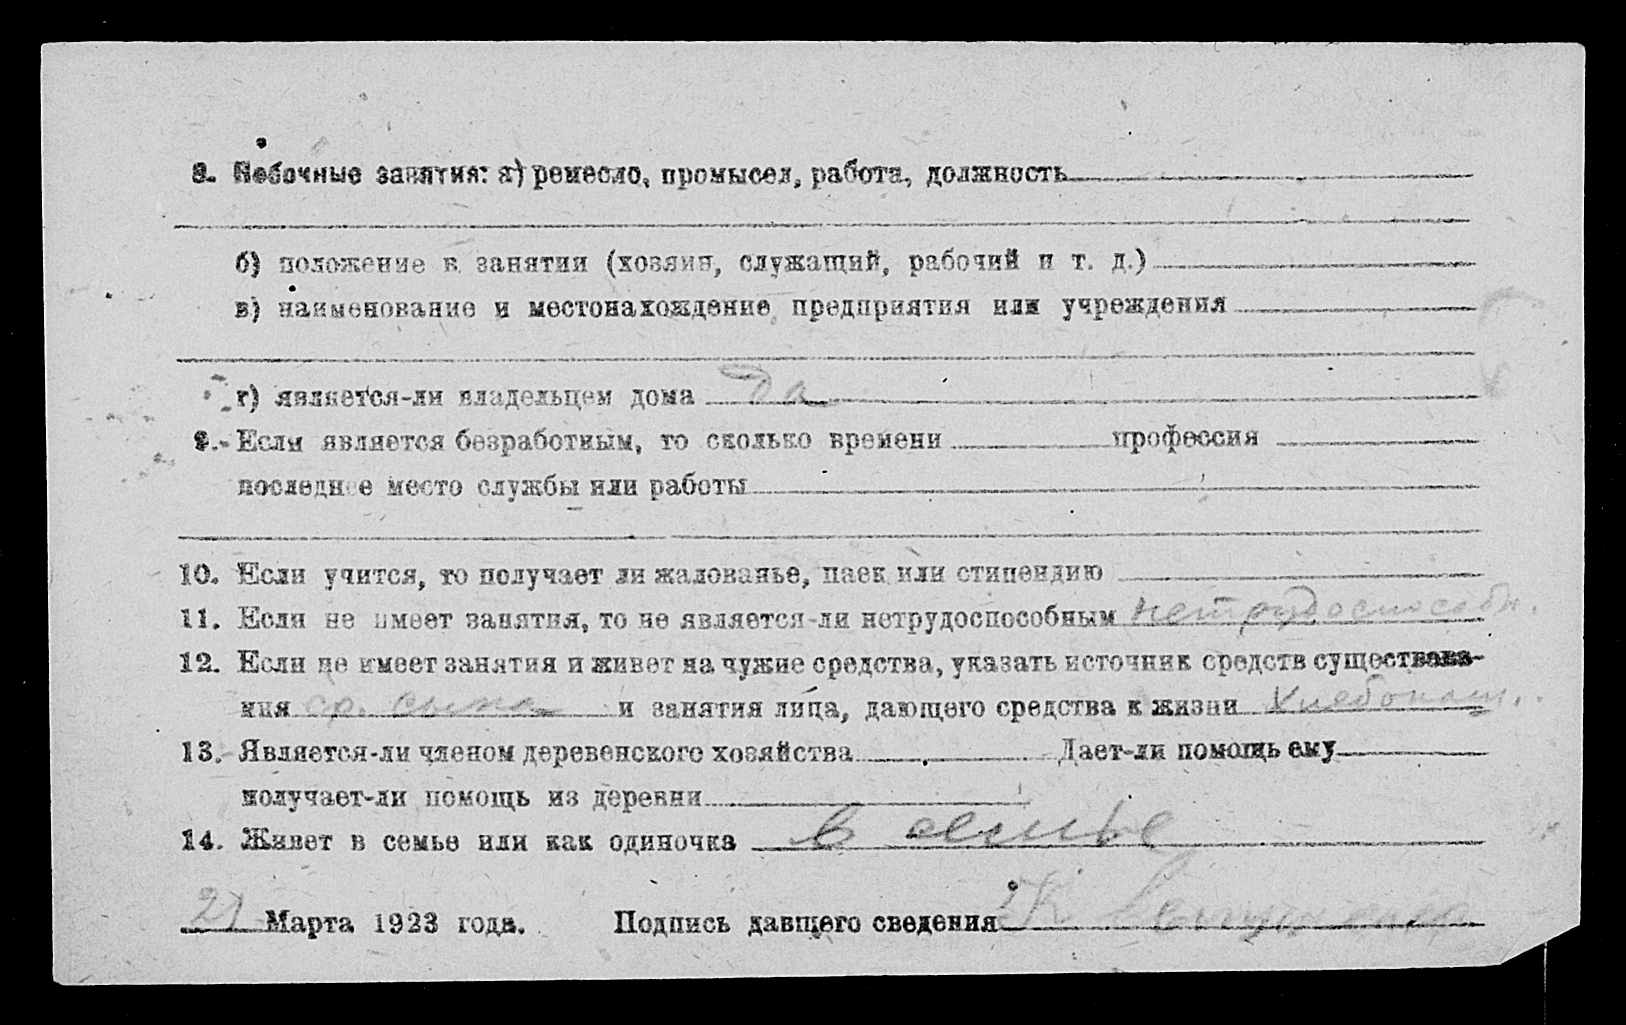 8. Побочные занятия: а) ремесло, промысел, работа, должность
б) положение в занятии (хозяин, служащий, рабочий и т. д.)
в) наименование и местонахождение предприятия или учреждения
г) является-ли владельцем дома да
9. Если является безработным, то сколько времени профессия
последнее место службы или работы
10. Если учится, то получает ли жалованье, паек или стипендию
11. Если не имеет занятия, то не является-ли нетрудоспособным нетрудоспособн.
12. Если не имеет занятия и живет на чужие средства, указать источник средств существова-
ния ср. сына и занятия лица, дающего средства к жизни хлебопаш.
13. Является-ли членом деревенского хозяйства Дает-ли помощь ему
получает-ли помощь из деревни
14. Живет в семье или как одиночка в семье
21 Марта 1923 года. Подпись давшего сведения К